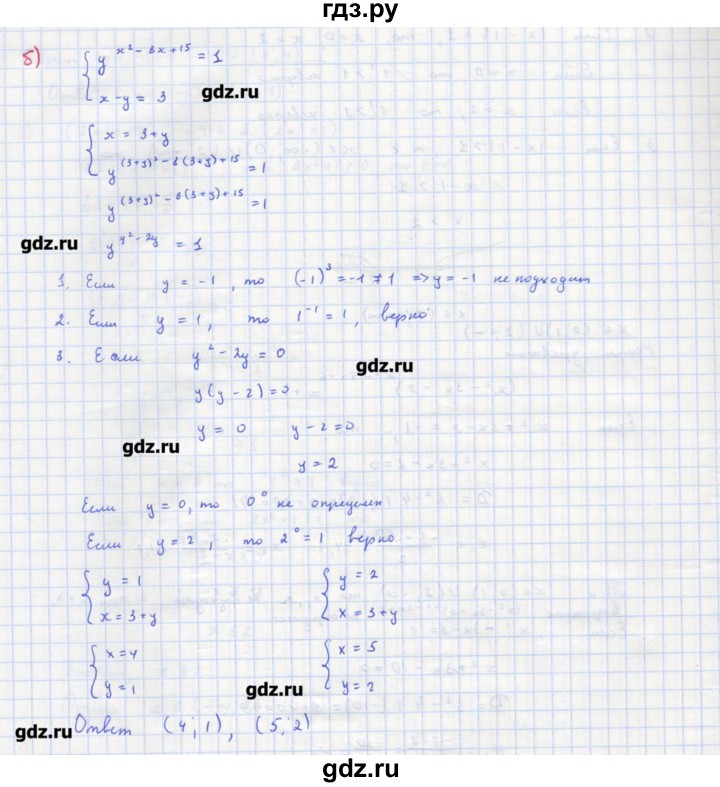 гдз.ру
б) { y^(x² - 8x + 15) = 1
x - y = 3
gdz.ru
{ x = 3 + y
y^((3+y)² - 8(3+y) + 15) = 1
y^((3+y)² - 8(3+y) + 15) = 1
gdz.ru
y^(y² - 2y) = 1
1. Если y = -1, то (-1)³ = -1 ≠ 1 => y = -1 не подходит
2. Если y = 1, то 1⁻¹ = 1, верно
3. Если y² - 2y = 0
gdz.ru
y(y - 2) = 0
gdz.ru
y = 0 y - 2 = 0
y = 2
Если y = 0, то 0⁰ не определен
Если y = 2, то 2⁰ = 1 верно
{ y = 1 { y = 2
x = 3 + y x = 3 + y
{ x = 4 { x = 5
y = 1 y = 2
gdz.ru
gdz.ru
Ответ (4; 1), (5; 2)
gdz.ru